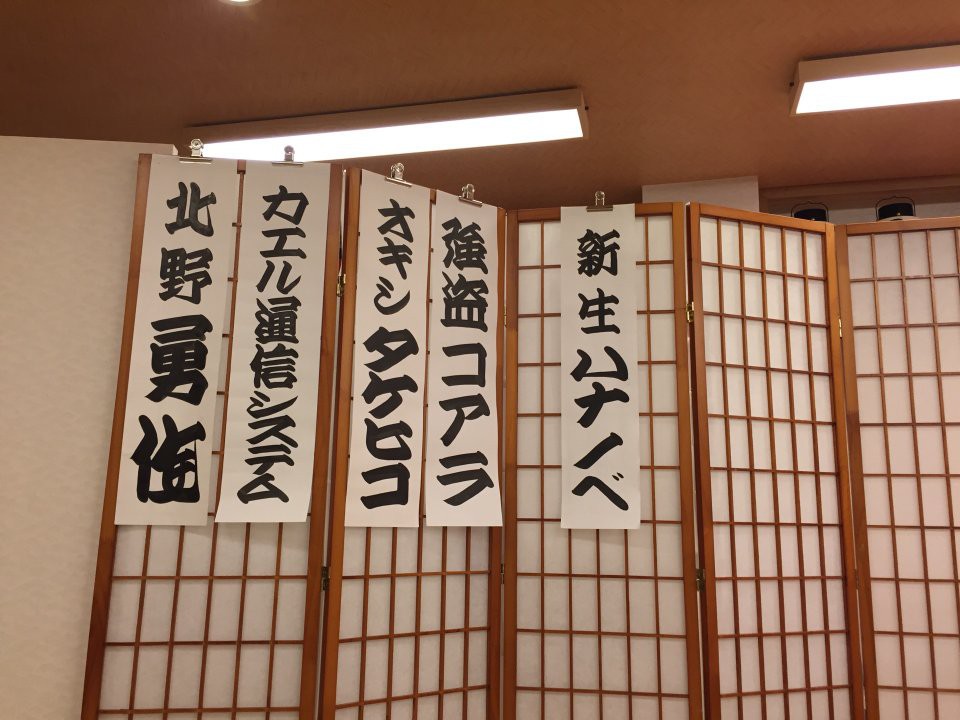 新生ハナノベ
強盗コアラ
オキシタケヒコ
カエル通信システム
北野勇作